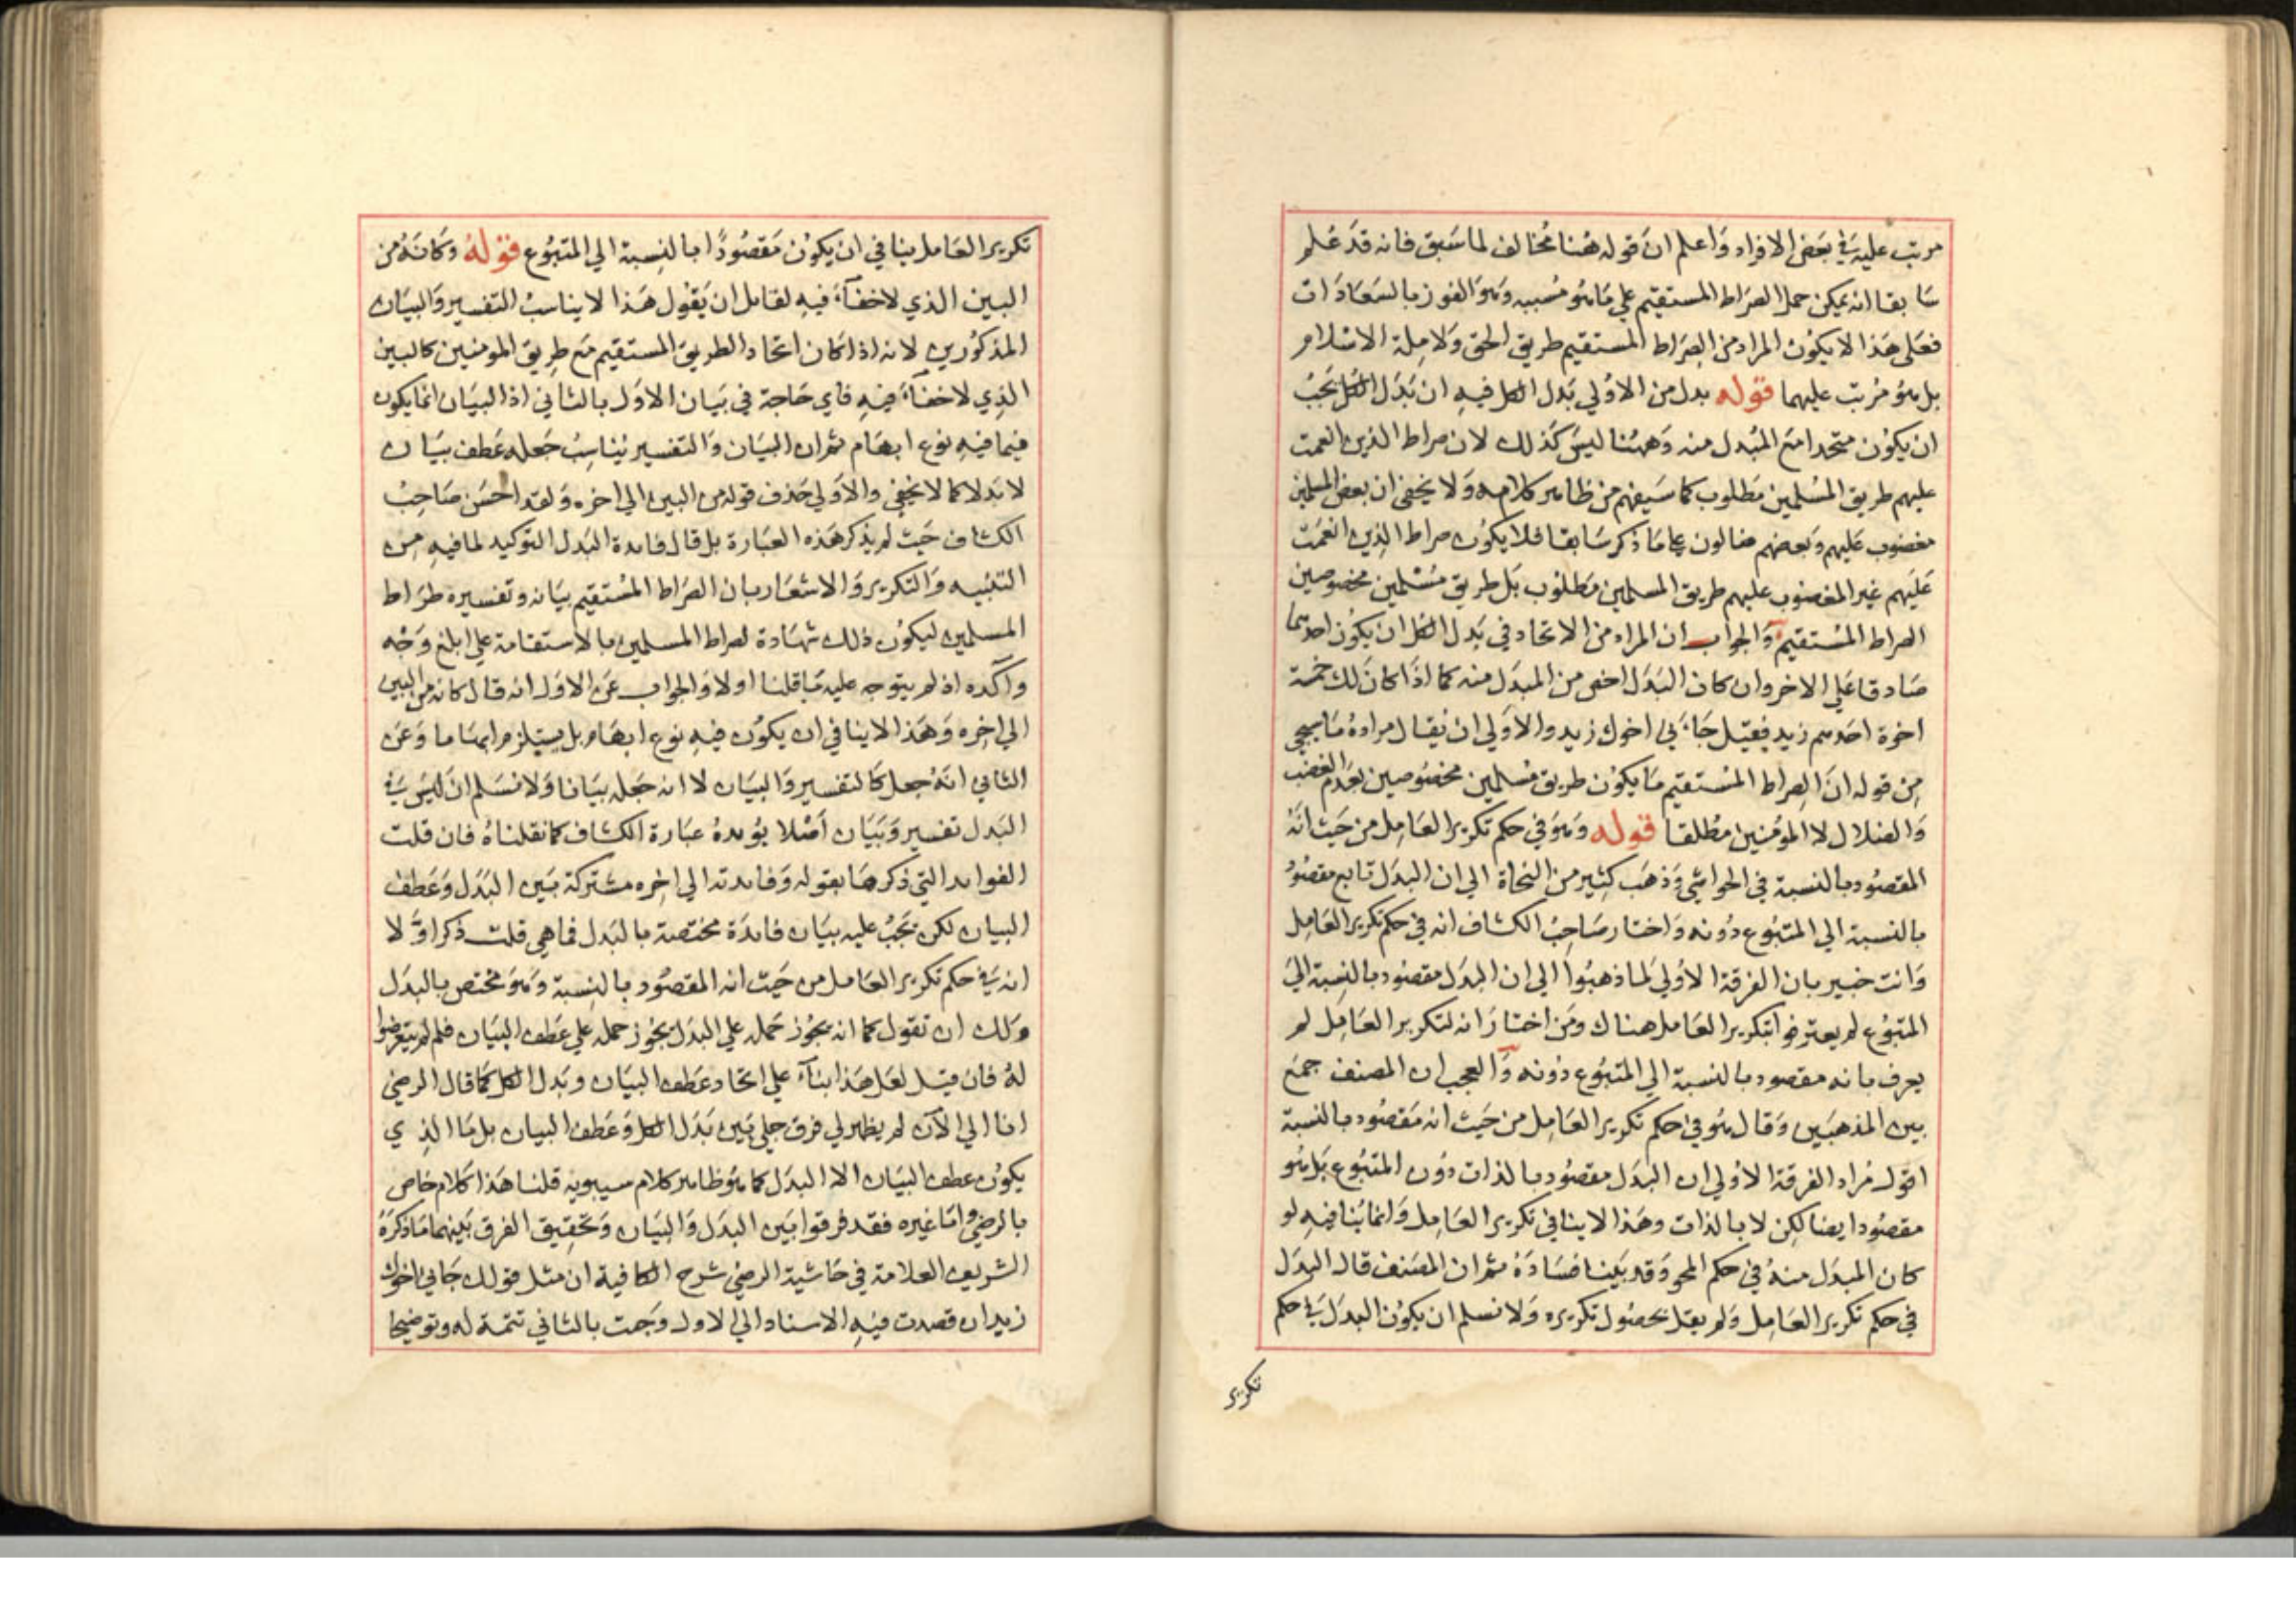 مرتب عليه في بعض الافراد واعلم ان قوله هنا مخالف لما سبق فانه قد علم
سابقا انه يمكن حمل الصراط المستقيم علي ما هو مسببه وهو الفوز بالسعادات
فعلي هذا لا يكون المراد من الصراط المستقيم طريق الحق ولا ملة الاسلام
بل هو مرتب عليهما قوله بدل من الاولي بدل الكل فيه ان بدل الكل يجب
ان يكون متحدا مع المبدل منه وههنا ليس كذلك لان صراط الذين انعمت
عليهم طريق المسلمين مطلوب كما سيفهم من ظاهر كلامه ولا يخفي ان بعض المسلمين
مغضوب عليهم وبعضهم ضالون علي ما ذكر سابقا فلا يكون صراط الذين انعمت
عليهم غير المغضوب عليهم طريق المسلمين مطلوب بل طريق مسلمين مخصوصين
الصراط المستقيم والجواب ان المراد من الاتحاد في بدل الكل ان يكون احدهما
صادقا علي الاخر وان كان البدل اخص من المبدل منه كما اذا كان لك خمسة
اخوة احدهم زيد فقيل جاءني اخوك زيد والاولي ان يقال مراده ما سيجي
من قوله ان الصراط المستقيم ما يكون طريق مسلمين مخصوصين بعدم الغضب
والضلال لا المؤمنين مطلقا قوله وهو في حكم تكرير العامل من حيث انه
المقصود بالنسبة في الحواشي وذهب كثير من النحاة الي ان البدل تابع مقصود
بالنسبة الي المتبوع دونه واختار صاحب الكشاف انه في حكم تكرير العامل
وانت خبير بان الفرقة الاولي لما ذهبوا الي ان البدل مقصود بالنسبة الي
المتبوع لم يعترضوا بتكرير العامل هناك ومن اختار انه لتكرير العامل لم
يعرف بانه مقصود بالنسبة الي المتبوع دونه والعجب ان المصنف جمع
بين المذهبين وقال هو في حكم تكرير العامل من حيث انه مقصود بالنسبة
اقول مراد الفرقة الاولي ان البدل مقصود بالذات دون المتبوع بل هو
مقصود ايضا لكن لا بالذات وهذا لا ينافي تكرير العامل وانما ينافيه لو
كان المبدل منه في حكم المحو وقد بينا فساده ثم ان المصنف قال البدل
في حكم تكرير العامل ولم يقل بحصول تكريره ولا نسلم ان يكون البدل في حكم
تكرير
تكرير العامل ينافي ان يكون مقصودا بالنسبة الي المتبوع قوله وكانه من
البين الذي لا خفآء فيه لقائل ان يقول هذا لا يناسب التفسير والبيان
المذكورين لانه اذا كان اتحاد الطريق المستقيم مع طريق المومنين كالبين
الذي لا خفآء فيه فاي حاجة في بيان الاول بالثاني اذ البيان انما يكون
فيما فيه نوع ابهام ثم ان البيان والتفسير يناسب جعله عطف بيان
لا بدلا كما لا يخفي والاولي حذف قوله من البين الي اخره ولقد احسن صاحب
الكشاف حيث لم يذكر هذه العبارة بل قال فايدة البدل التوكيد لما فيه من
التنبيه والتكرير والاشعار بان الصراط المستقيم بيانه وتفسيره صراط
المسلمين ليكون ذلك شهادة لصراط المسلمين بالاستقامة علي ابلغ وجه
وآكده اذ لم يتوجه عليه ما قلنا اولا والجواب عن الاول انه قال كانه من البين
الي اخره وهذا لا ينافي ان يكون فيه نوع ابهام بل يستلزم ابهاما ما وعن
الثاني انه جعل كالتفسير والبيان لا انه جعله بيانا ولا نسلم ان ليس في
البدل تفسير وبيان اصلا يؤيده عبارة الكشاف كما نقلناه فان قلت
الفوايد التي ذكرها بقوله وفايدته الي اخره مشتركة بين البدل وعطف
البيان لكن يجب عليه بيان فايدة مختصة بالبدل فما هي قلت ذكر اولا
انه في حكم تكرير العامل من حيث انه المقصود بالنسبة وهو مختص بالبدل
ولك ان تقول كما انه يجوز حمله علي البدل يجوز حمله علي عطف البيان فلم لم يتعرضوا
له فان قيل لعل هذا بناآ علي اتحاد عطف البيان وبدل الكل كما قال الرضي
انا الي الآن لم يظهر لي فرق جلي بين بدل الكل وعطف البيان بل ما الذي
يكون عطف البيان الا البدل كما هو ظاهر كلام سيبويه قلنا هذا كلام خاص
بالرضي واما غيره فقد فرقوا بين البدل والبيان وتحقيق الفرق بينهما ما ذكره
الشريف العلامة في حاشية الرضي شرح الكافية ان مثل قولك جاني اخوك
زيد ان قصدت فيه الاسناد الي الاول وجئت بالثاني تتمة له وتوضيحا